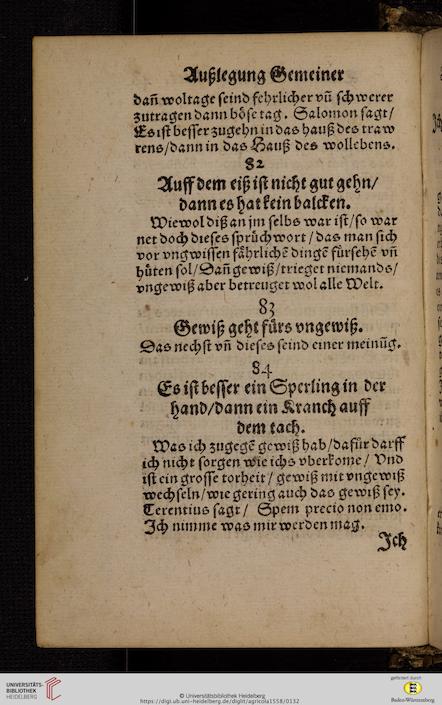 Außlegung Gemeiner
dañ woltage seind fehrlicher vñ schwerer
zutragen dann böse tag. Salomon sagt/
Es ist besser zugehn in das hauß des traw
rens/dann in das Hauß des wollebens.
82
Auff dem eiß ist nicht gut gehn/
dann es hat kein balcken.
Wiewol diß an jm selbs war ist/so war
net doch dieses sprüchwort/das man sich
vor vngwissen fährlichē dingē fürsehē vñ
hüten sol/Dañ gewiß/trieget niemands/
vngewiß aber betreuget wol alle Welt.
83
Gewiß geht fürs vngewiß.
Das nechst vñ dieses seind einer meinũg.
84
Es ist besser ein Sperling in der
hand/dann ein Kranch auff
dem tach.
Was ich zugegē gewiß hab/dafür darff
ich nicht sorgen wie ichs vberkome/ Vnd
ist ein grosse torheit/ gewiß mit vngewiß
wechseln/wie gering auch das gewiß sey.
Terentius sagt/ Spem precio non emo.
Ich nimme was mir werden mag.
Ich
UNIVERSITÄTS-
BIBLIOTHEK
HEIDELBERG
© Universitätsbibliothek Heidelberg
https://digi.ub.uni-heidelberg.de/diglit/agricola1558/0132
gefördert durch
Baden-Württemberg